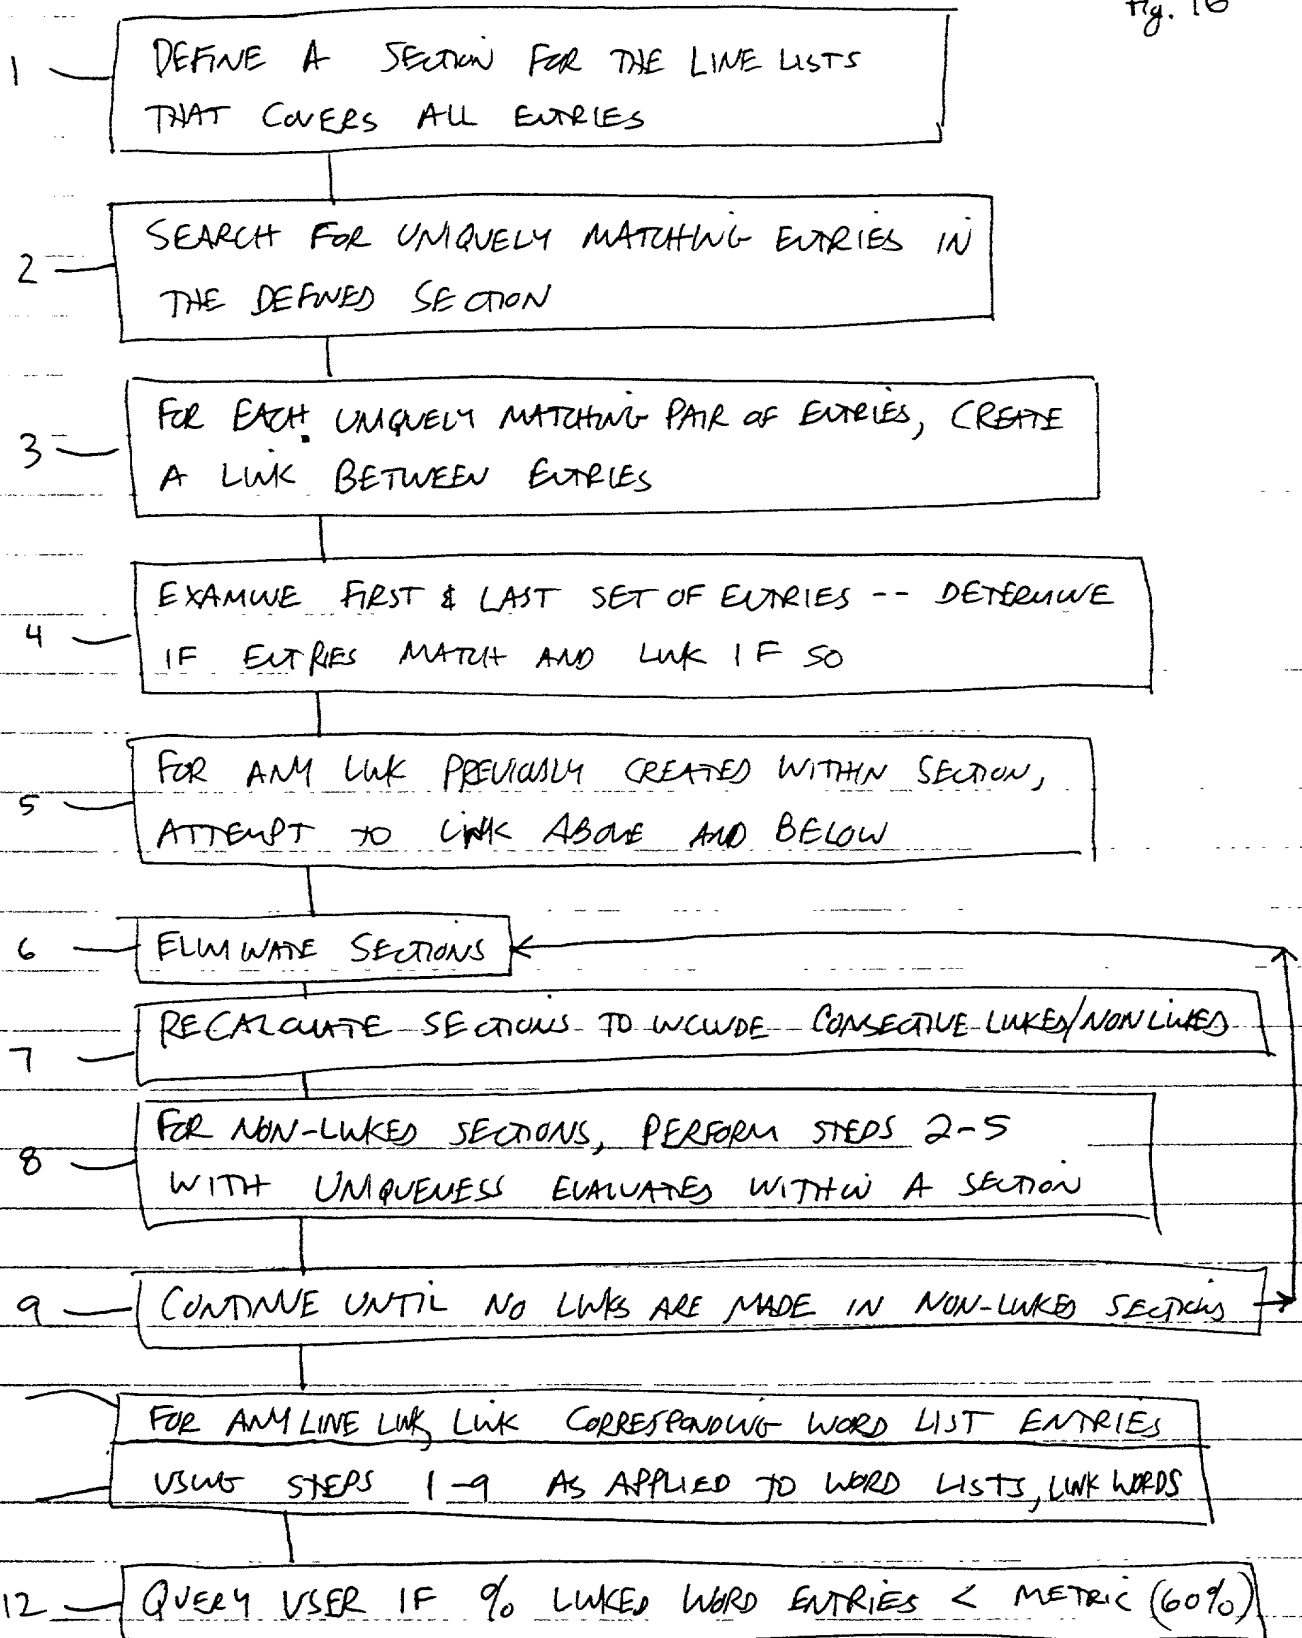 Fig. 16
1
DEFINE A SECTION FOR THE LINE LISTS
THAT COVERS ALL ENTRIES
2
SEARCH FOR UNIQUELY MATCHING ENTRIES IN
THE DEFINED SECTION
3
FOR EACH UNIQUELY MATCHING PAIR OF ENTRIES, CREATE
A LINK BETWEEN ENTRIES
4
EXAMINE FIRST & LAST SET OF ENTRIES -- DETERMINE
IF ENTRIES MATCH AND LINK IF SO
5
FOR ANY LINK PREVIOUSLY CREATED WITHIN SECTION,
ATTEMPT TO LINK ABOVE AND BELOW
6
ELIMINATE SECTIONS
7
RECALCULATE SECTIONS TO INCLUDE CONSECTIVE LINKED/NONLINKED
8
FOR NON-LINKED SECTIONS, PERFORM STEPS 2-5
WITH UNIQUENESS EVALUATED WITHIN A SECTION
9
CONTINUE UNTIL NO LINKS ARE MADE IN NON-LINKED SECTIONS
FOR ANY LINE LINK, LINK CORRESPONDING WORD LIST ENTRIES
USING STEPS 1-9 AS APPLIED TO WORD LISTS, LINK WORDS
12
QUERY USER IF % LINKED WORD ENTRIES < METRIC (60%)